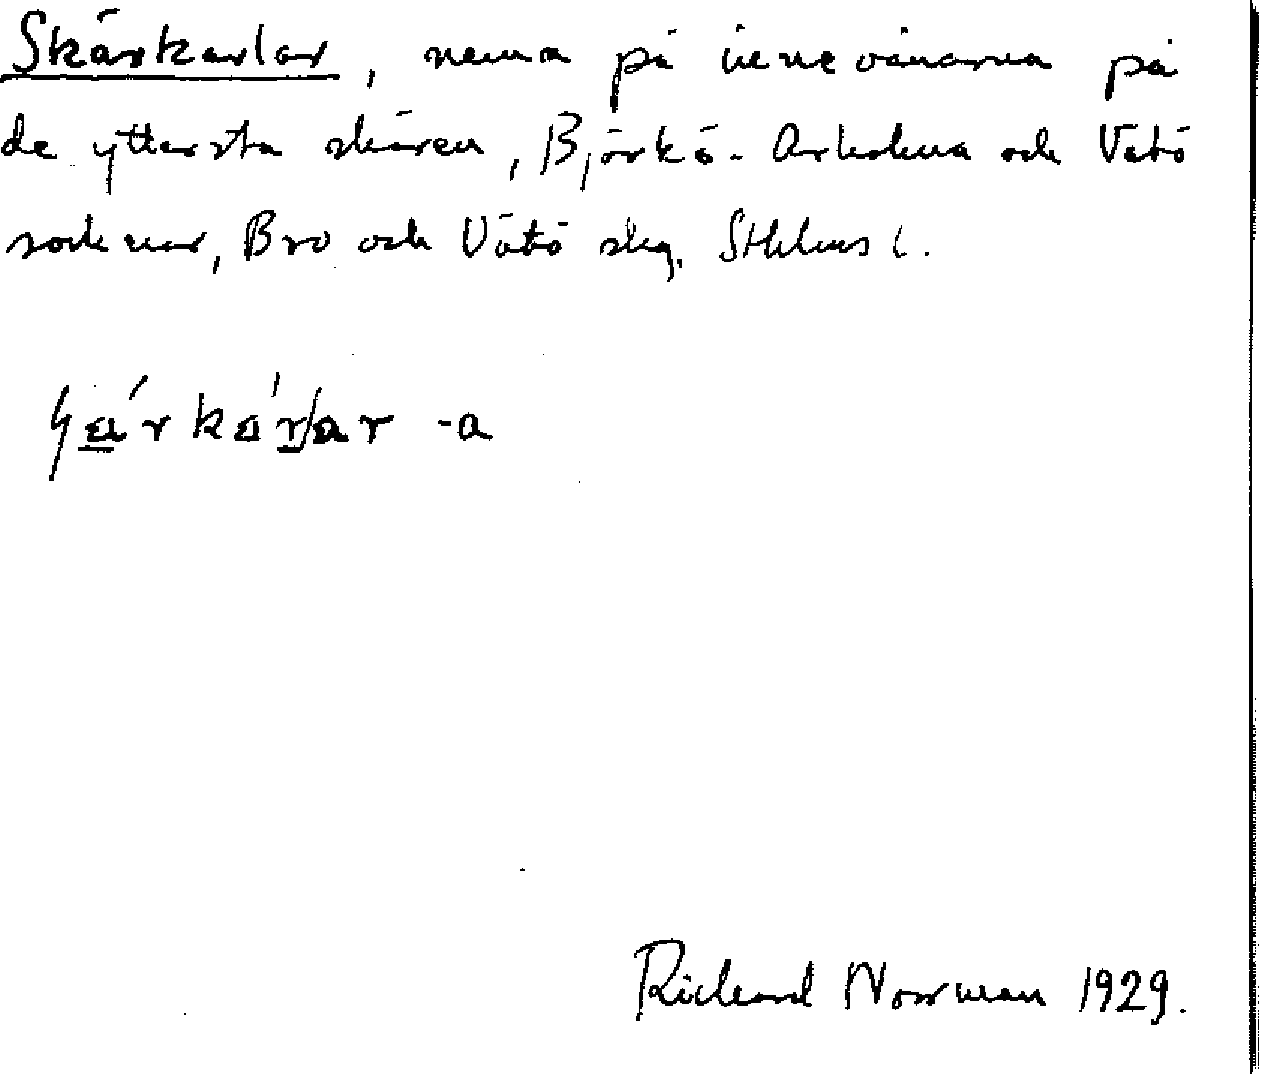 Skärkarlar, nema på inevånarna på
de yttersta skären, Björkö-Arholma och Vätö
socknar, Bro och Vätö skg. Sthlms l.
-a
Richard Norrman 1929.